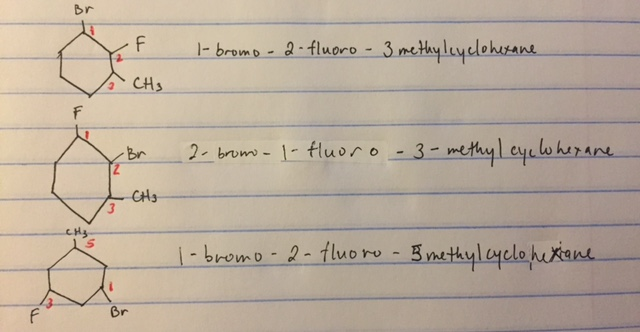 Br
1
F
2
3
CH3
1-bromo-2-fluoro-3methylcyclohexane
F
1
Br
2
3
CH3
2-bromo-1-fluoro-3-methylcyclohexane
CH3
5
3
1
F
Br
1-bromo-2-fluoro-5methylcyclohexane